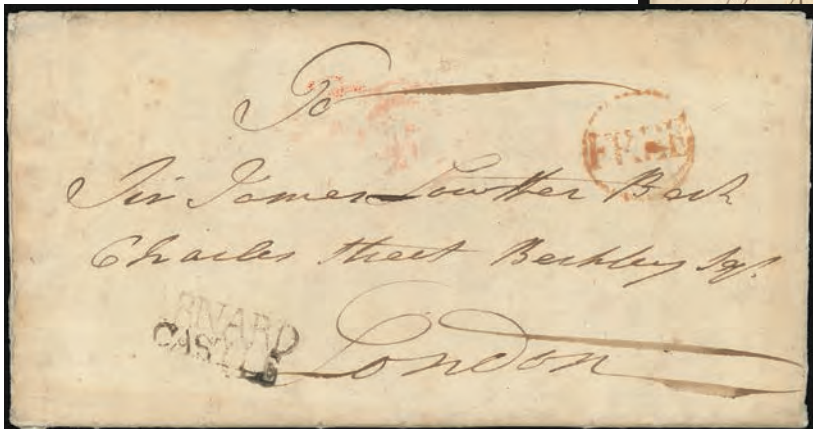 To
FREE
Sir James Lowther Bart
Charles Street Berkley Sqr.
RNARD
CASTLE
London